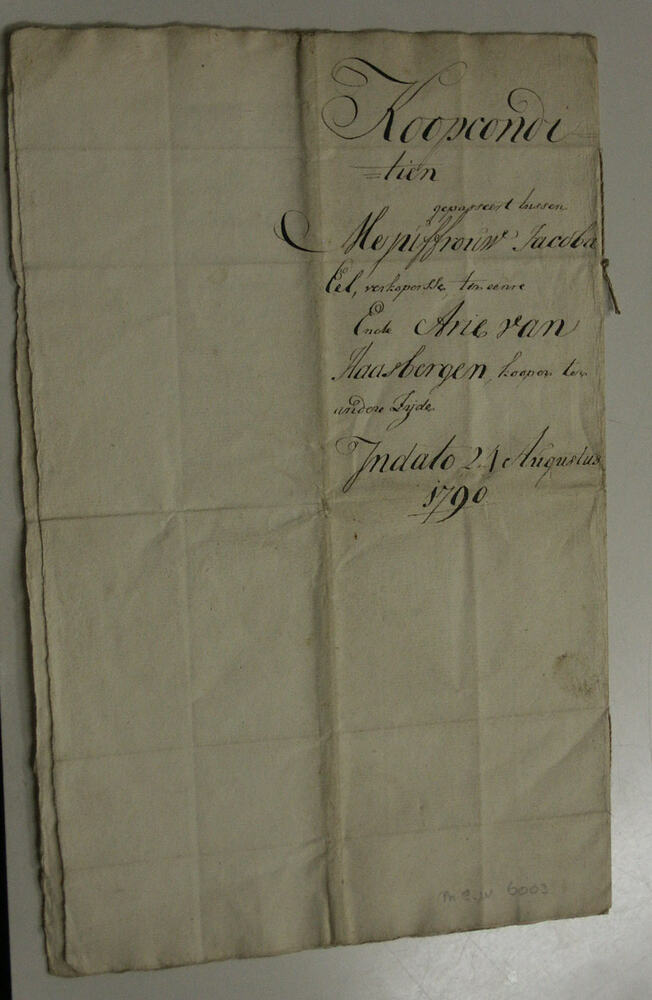 Koopcondi
=tien
gepasseert tussen
Mejuffrouw Jacoba
Eel, verkopersse, ter eenre
Ende Arie van
Haasbergen, kooper ter
andere Zijde.
Indato 24 Augustus
1790
6003